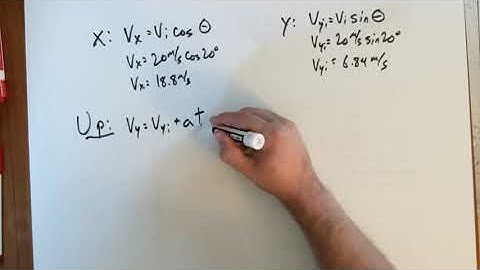 X: Vx = Vi cos Θ
Vx = 20 m/s cos 20°
Vx = 18.8 m/s
Y: Vyi = Vi sin Θ
Vyi = 20 m/s sin 20°
Vyi = 6.84 m/s
Up: Vy = Vyi + at